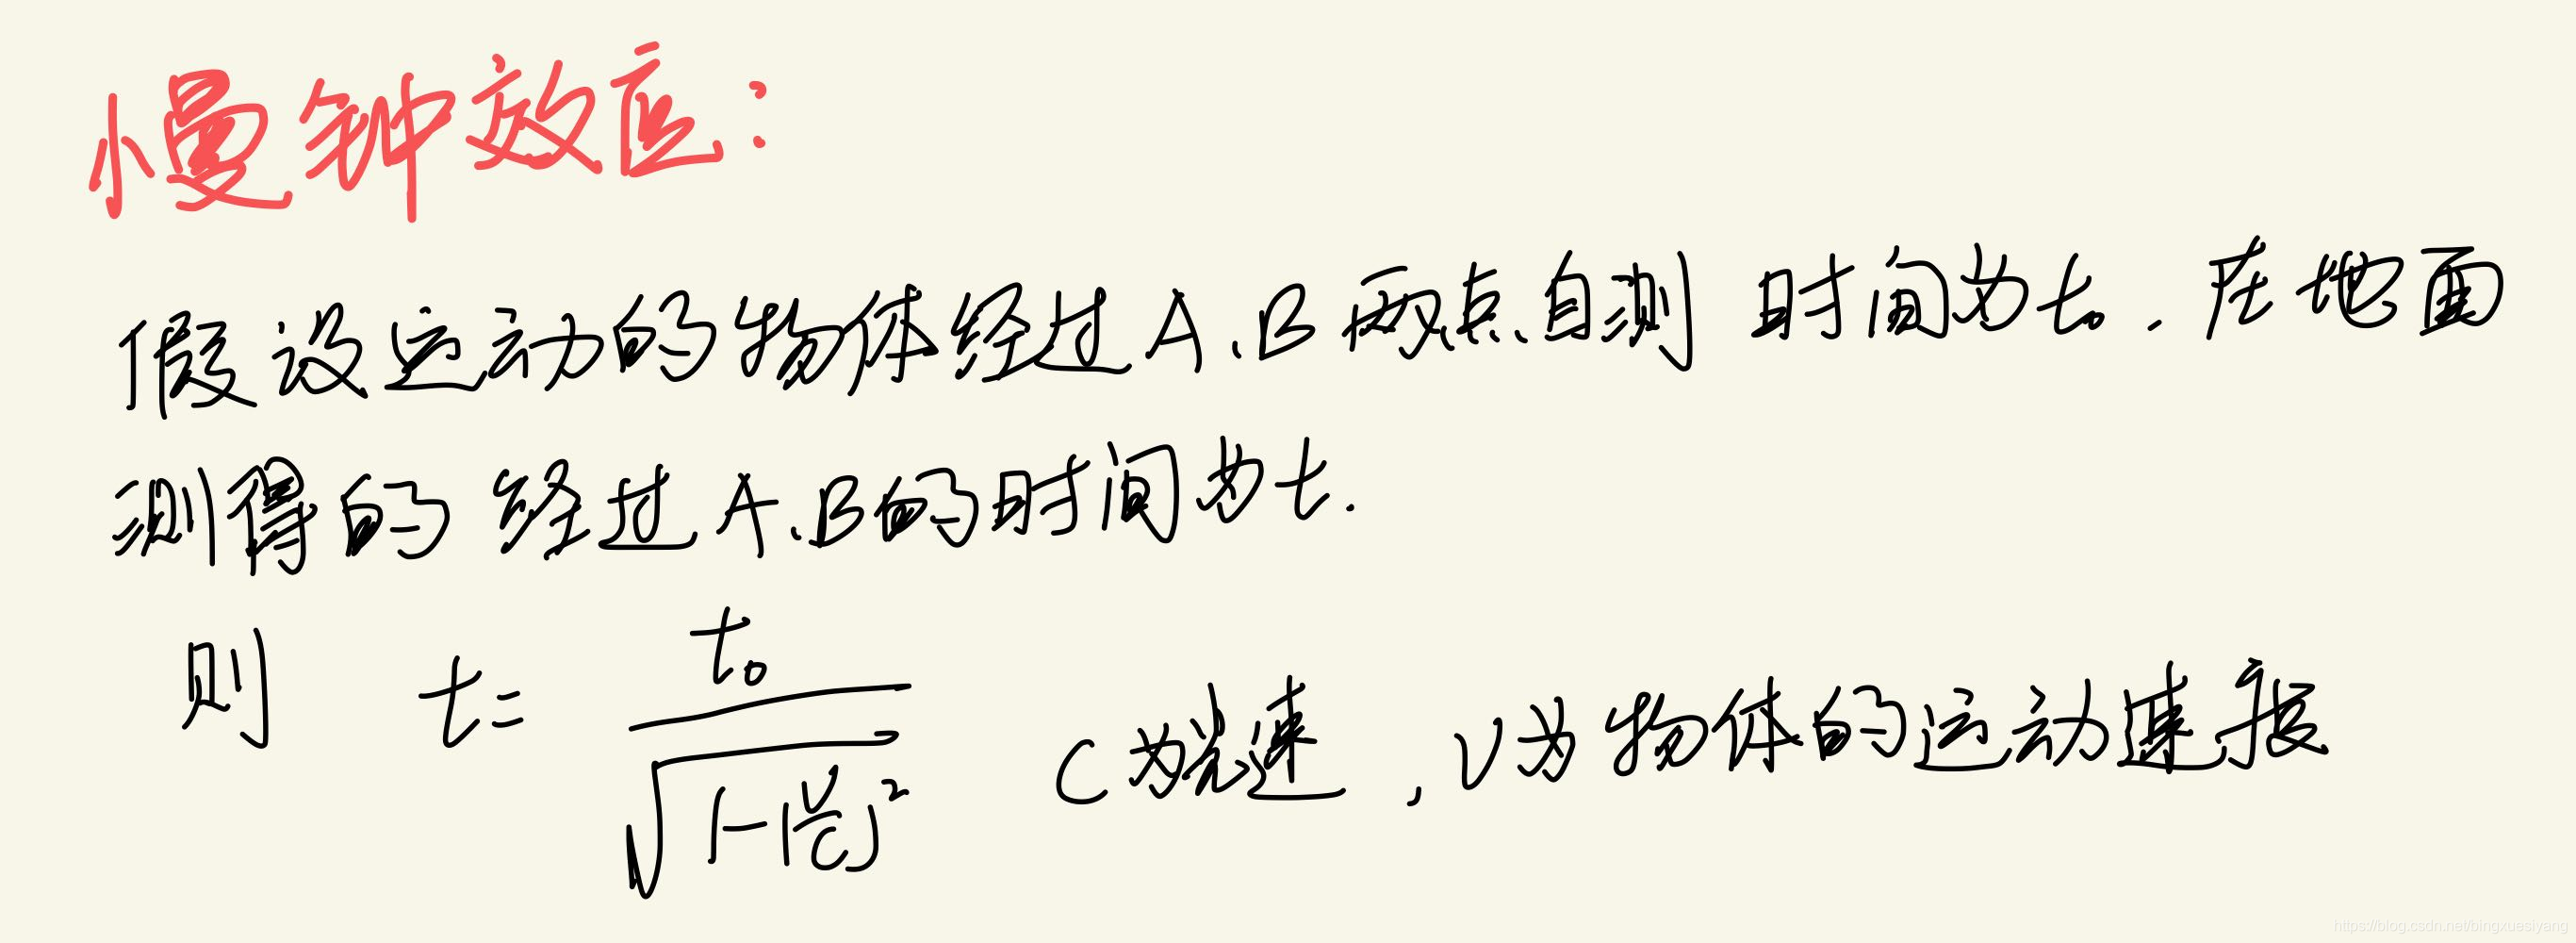 慢钟效应:
假设运动的物体经过A、B两点自测 时间为t₀. 在地面
测得的经过A、B的时间为t.
则 t= t₀/√(1-(v/c)²) C为光速,V为物体的运动速度
https://blog.csdn.net/bingxuesiyang